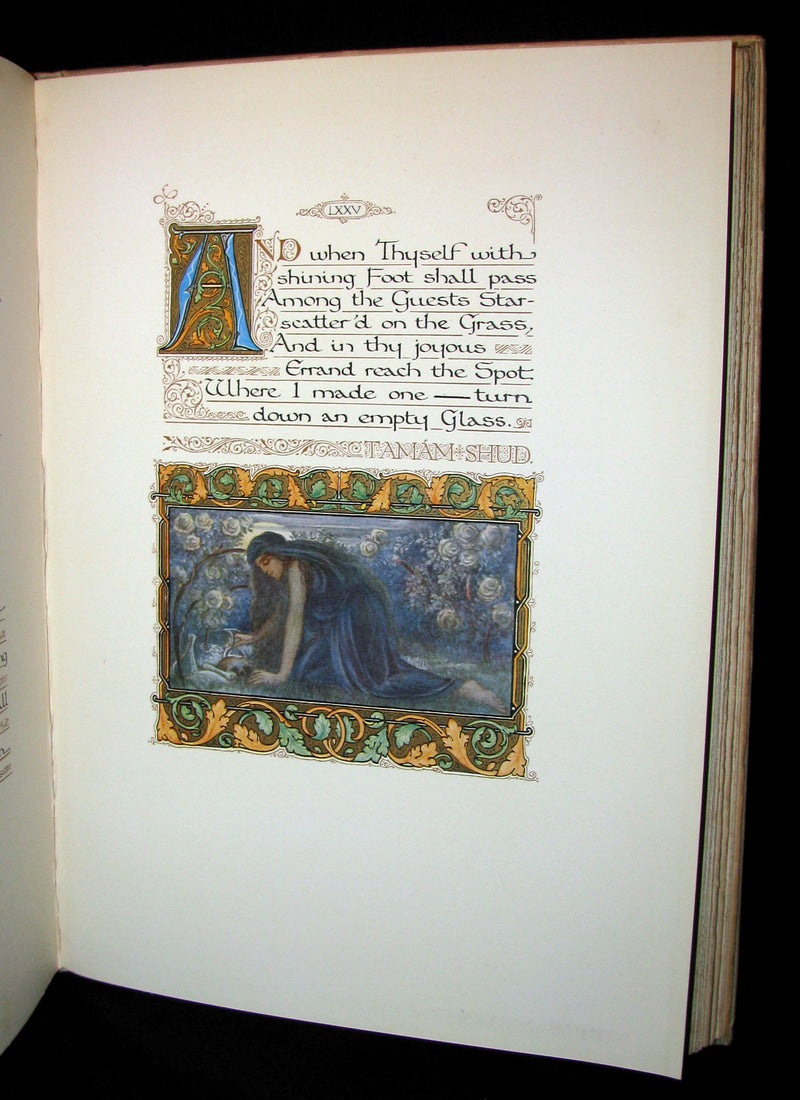 LXXV
AND when Thyself with
shining Foot shall pass
Among the Guests Star-
scatter'd on the Grass,
And in thy joyous
Errand reach the Spot
Where I made one — turn
down an empty Glass.
TAMÁM * SHUD.